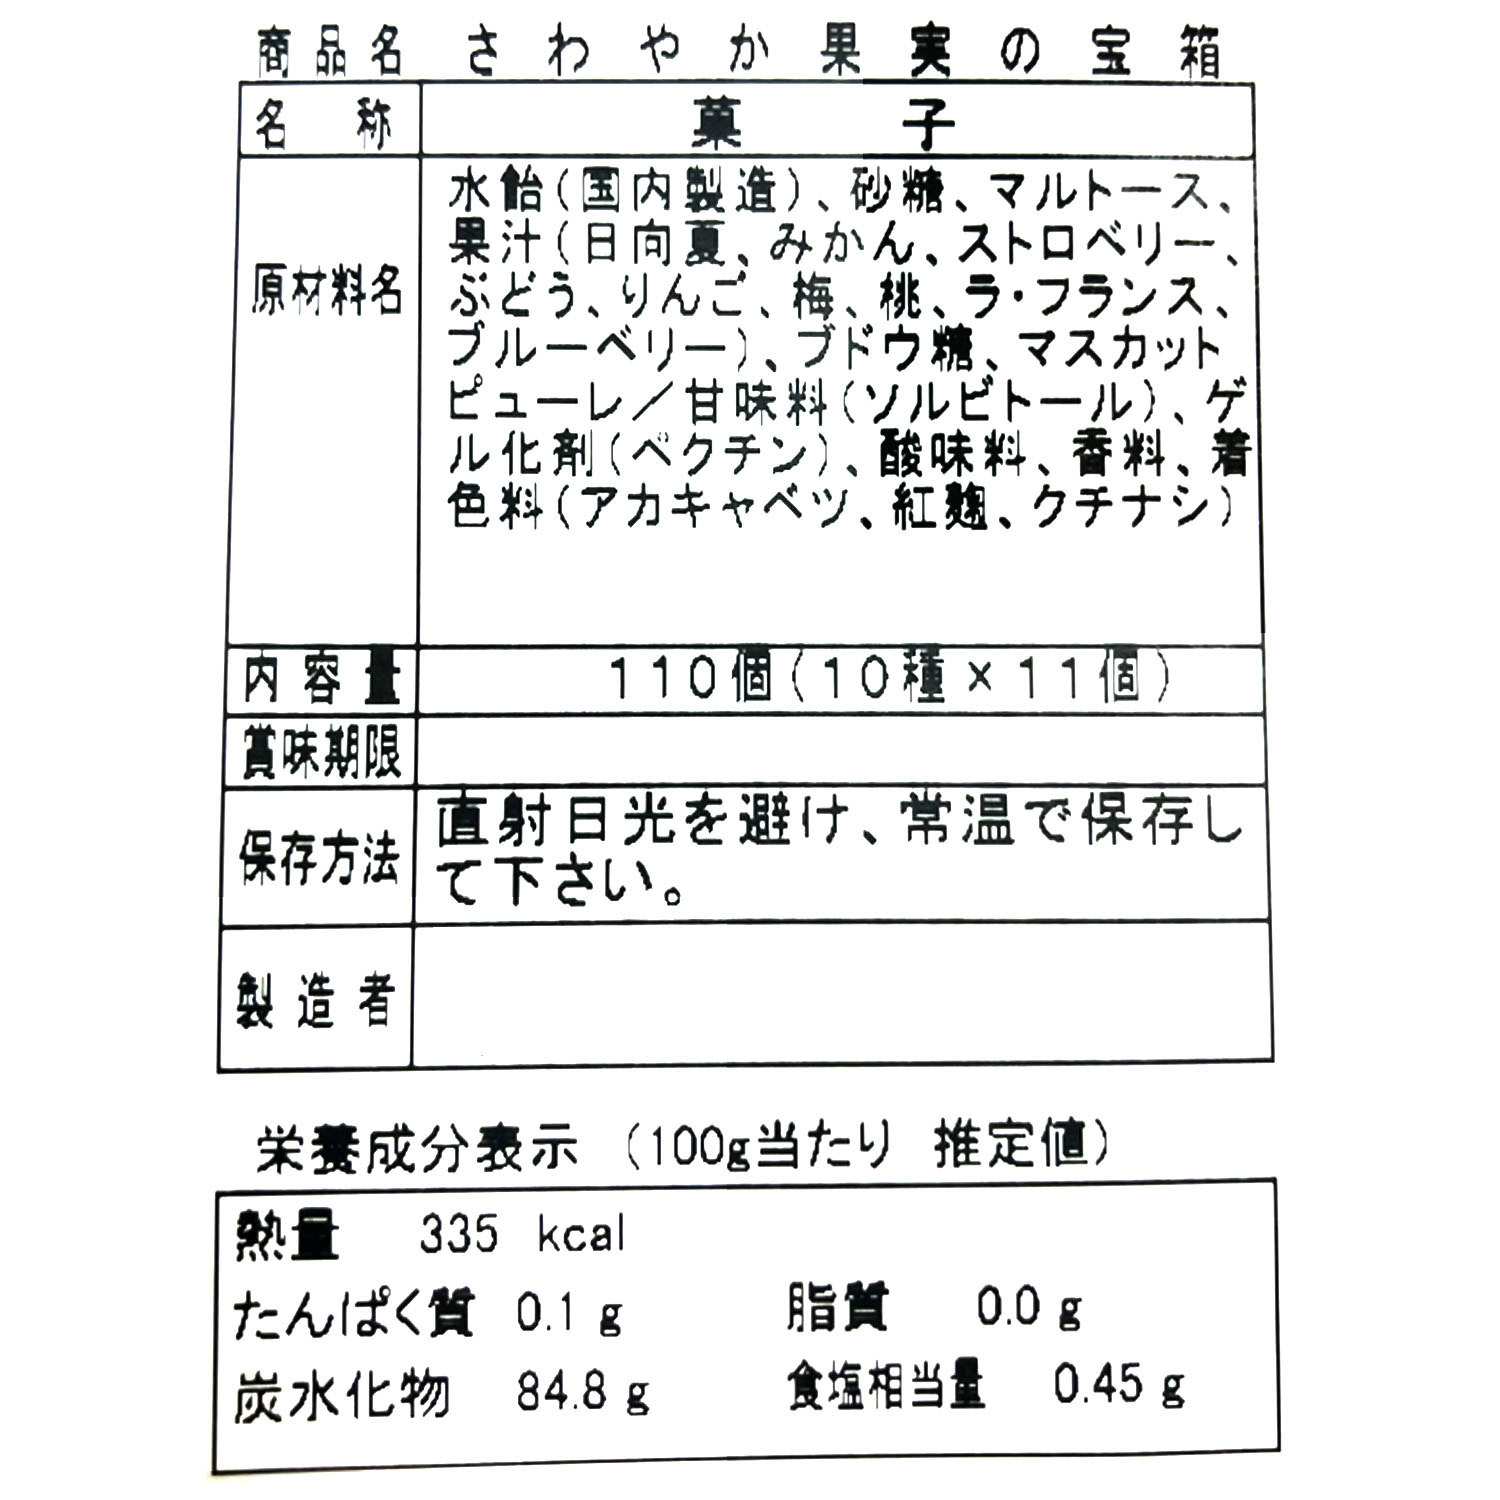 商品名 さわやか果実の宝箱
名称 菓子
原材料名
水飴(国内製造)、砂糖、マルトース、
果汁(日向夏、みかん、ストロベリー、
ぶどう、りんご、梅、桃、ラ・フランス、
ブルーベリー)、ブドウ糖、マスカット
ピューレ／甘味料(ソルビトール)、ゲ
ル化剤(ペクチン)、酸味料、香料、着
色料(アカキャベツ、紅麹、クチナシ)
内容量 110個(10種×11個)
賞味期限
保存方法
直射日光を避け、常温で保存し
て下さい。
製造者
栄養成分表示 (100g当たり 推定値)
熱量 335 kcal
たんぱく質 0.1 g 脂質 0.0 g
炭水化物 84.8 g 食塩相当量 0.45 g